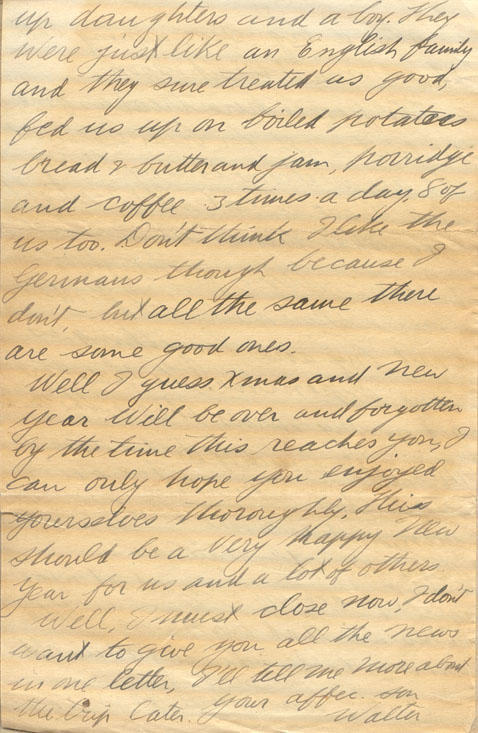 up daughters and a boy. They
were just like an English family
and they sure treated us good,
fed us up on boiled potatoes
bread & butter and jam, porridge
and coffee 3 times a day, 8 of
us too. Don't think I like the
Germans though because I
don't, but all the same there
are some good ones.
Well I guess Xmas and New
year will be over and forgotten
by the time this reaches you, I
can only hope you enjoyed
yourselves thoroughly. This
should be a very happy New
Year for us and a lot of others.
Well, I must close now, I don't
want to give you all the news
in one letter, I'll tell me more about
the trip later. your affec. son
Walter